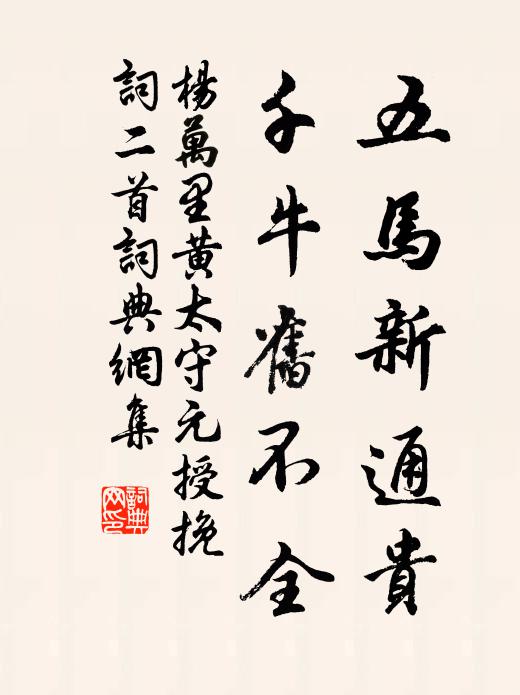 五馬新通貴
千牛舊不全
楊萬里黄太守元授挽
詞二首詞典網集
詞典
网印